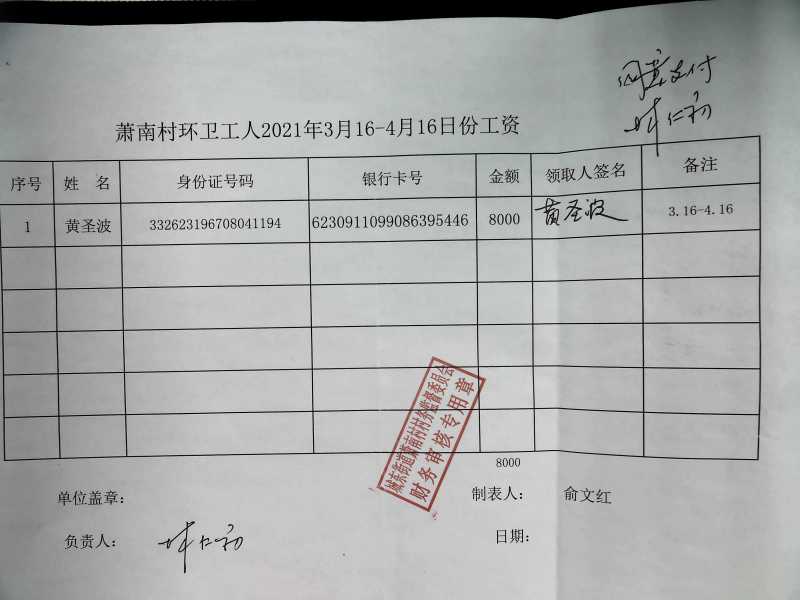 同意支付
林仁初
萧南村环卫工人2021年3月16-4月16日份工资
序号 姓 名 身份证号码 银行卡号 金额 领取人签名 备注
1 黄圣波 332623196708041194 6230911099086395446 8000 黄圣波 3.16-4.16
城东街道萧南村村务监督委员会
财务审核专用章
8000
单位盖章： 制表人： 俞文红
负责人： 林仁初 日期：